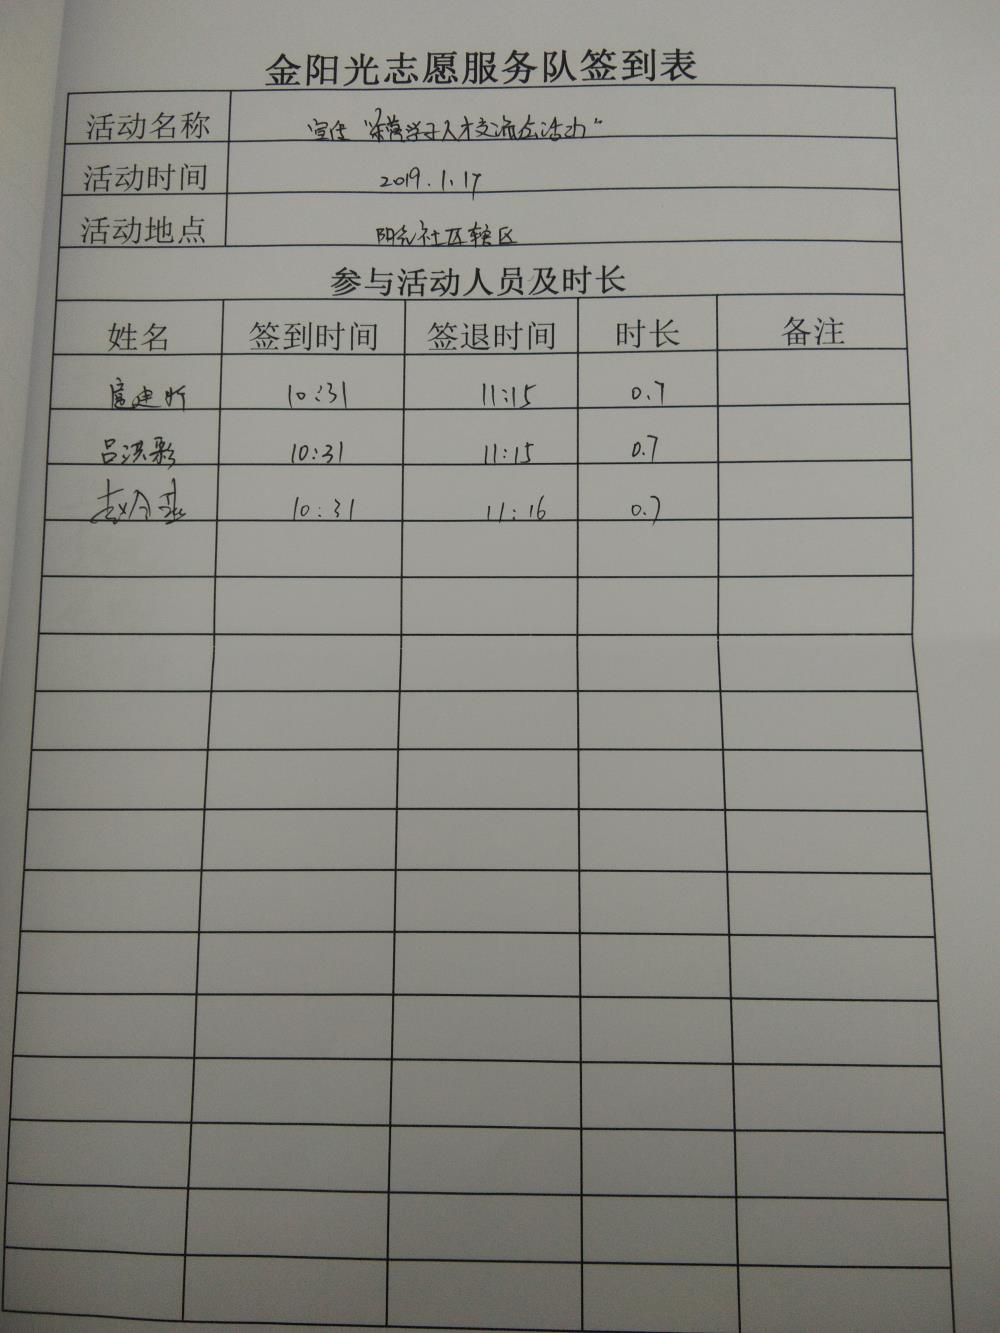 金阳光志愿服务队签到表
活动名称 宣传"东营学子人才交流会活动"
活动时间 2019.1.17
活动地点 阳光社区辖区
参与活动人员及时长
姓名 签到时间 签退时间 时长 备注
扈建昕 10:31 11:15 0.7
吕洪彩 10:31 11:15 0.7
赵 10:31 11:16 0.7